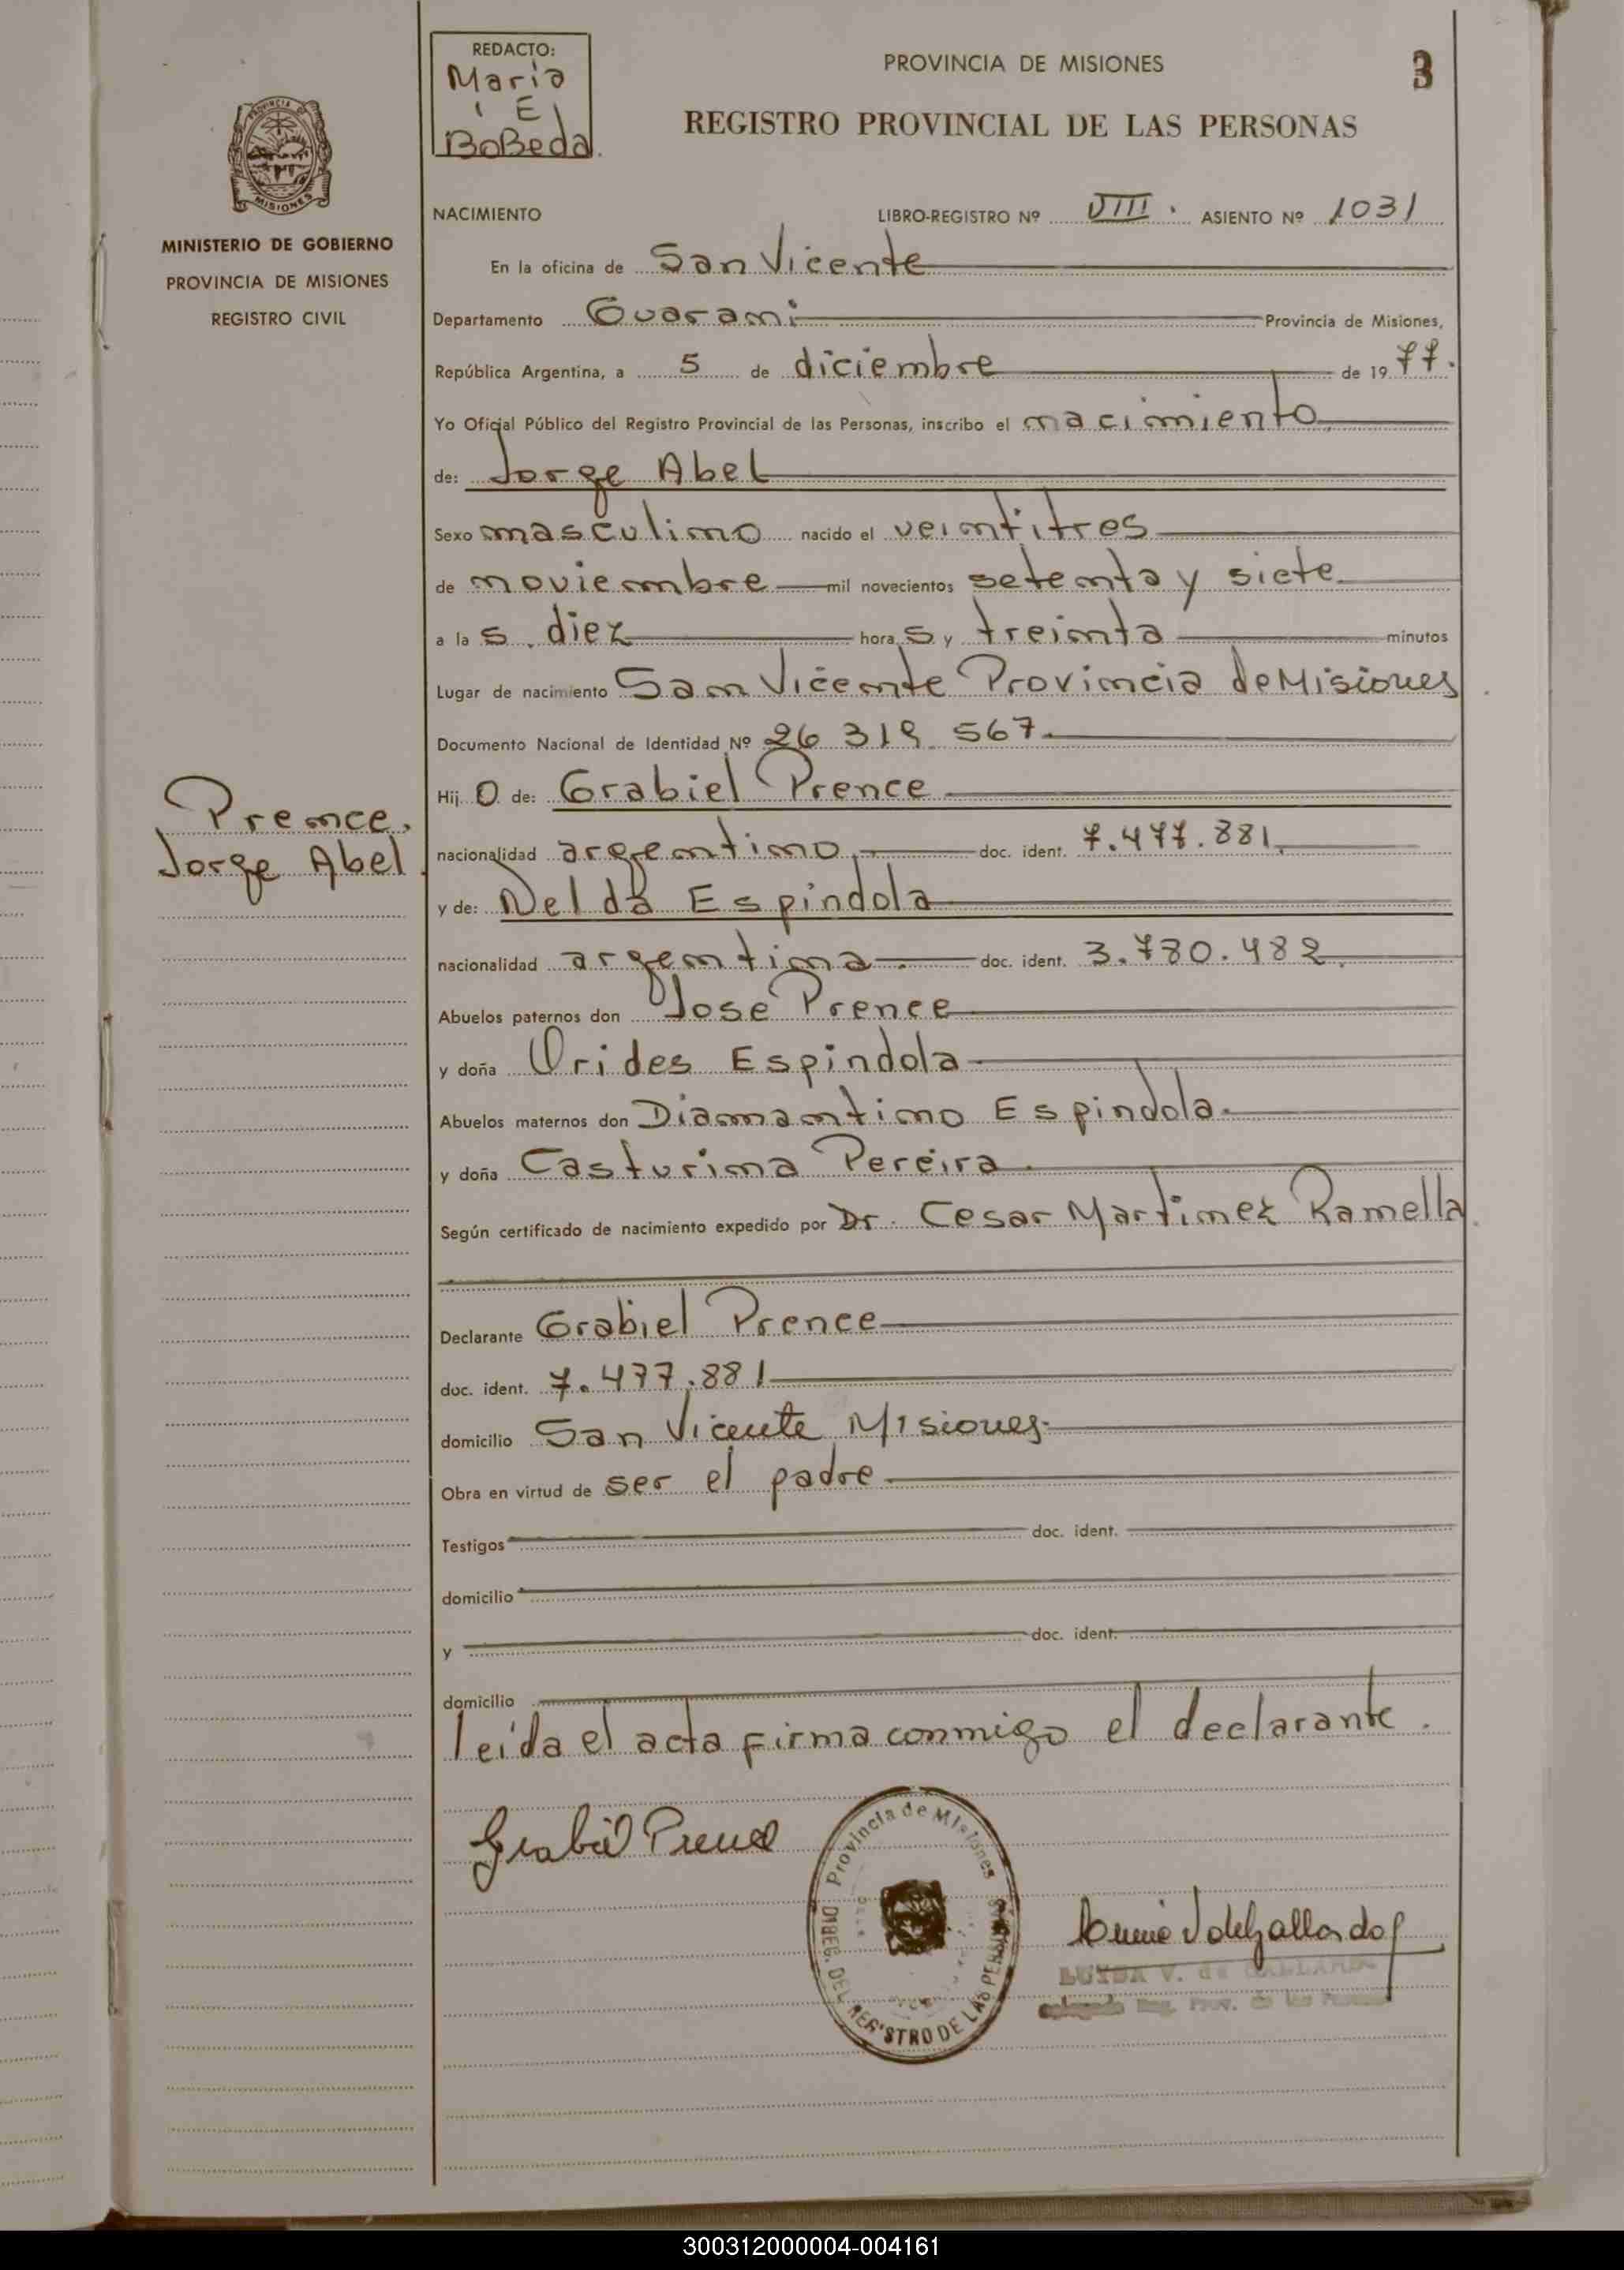 REDACTO:
Maria
E
BoBeda.
PROVINCIA DE MISIONES
3
REGISTRO PROVINCIAL DE LAS PERSONAS
MISIONES
MINISTERIO DE GOBIERNO
PROVINCIA DE MISIONES
REGISTRO CIVIL
NACIMIENTO
LIBRO-REGISTRO Nº VIII. ASIENTO Nº 1031
En la oficina de San Vicente
Departamento Guarani Provincia de Misiones,
República Argentina, a 5 de diciembre de 1977.
Yo Oficial Público del Registro Provincial de las Personas, inscribo el nacimiento
de: Jorge Abel
Sexo masculino nacido el veintitres
de noviembre mil novecientos setenta y siete
a las diez horas y treinta minutos
Lugar de nacimiento San Vicente Provincia de Misiones
Documento Nacional de Identidad Nº 26 319 567.
Hijo de: Grabiel Prence
Prence,
Jorge Abel
nacionalidad argentino doc. ident. 7.477.881.
y de: Nelda Espindola
nacionalidad argentina doc. ident. 3.780.482.
Abuelos paternos don Jose Prence
y doña Orides Espindola
Abuelos maternos don Diamantino Espindola.
y doña Casturina Pereira
Según certificado de nacimiento expedido por Dr. Cesar Martinez Ramella.
Declarante Grabiel Prence
doc. ident. 7.477.881
domicilio San Vicente Misiones.
Obra en virtud de ser el padre
Testigos doc. ident.
domicilio
y doc. ident.
domicilio
leida el acta firma conmigo el declarante.
Grabiel Prence
Provincia de Misiones
DIREC. DEL REGISTRO DE LAS PERSONAS
V. de Gallardo
LUISA V. de GALLARDO
Reg. Prov. de las Personas
300312000004-004161